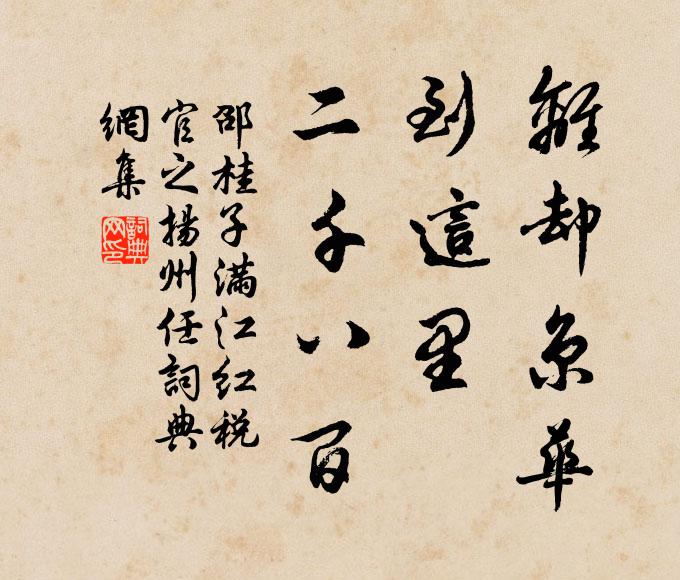 離却京華
到這里
二千八百
邵桂子滿江红税
官之揚州任詞典
網集
詞典
网印